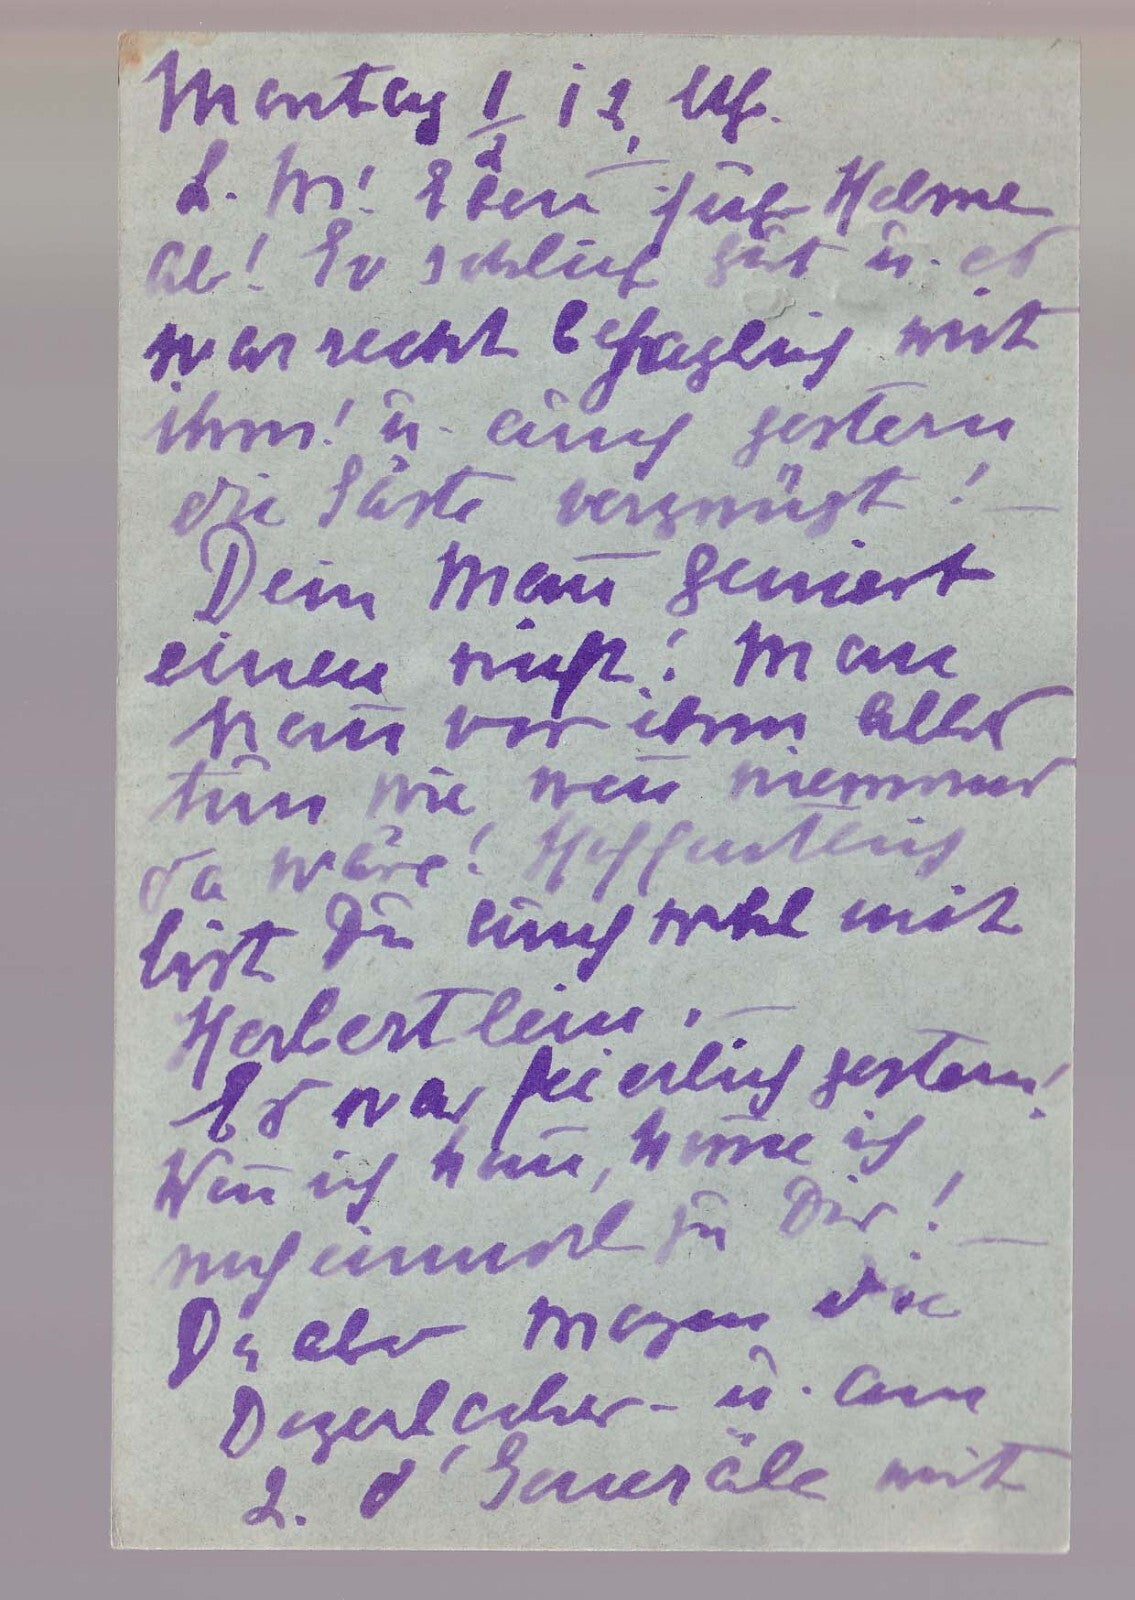 Montag 1/2 12 Uhr.
L. M! Eben fuhr Helme
ab! Er schlief gut u. es
war recht behaglich mit
ihm! u. auch gestern
die Gäste vergnügt! —
Dein Man̄ geniert
einen nicht! Man
kan̄ vor ihm alles
tun wie wen̄ niemand
da wäre! Hoffentlich
bist Du auch wohl mit
Herbertlein. —
Es war feierlich gestern!
Wen̄ ich kan̄, kom̄e ich
noch einmal zu Dir! —
Da aber morgen die
Degerlocher - u. am
2. d' Generäle mit